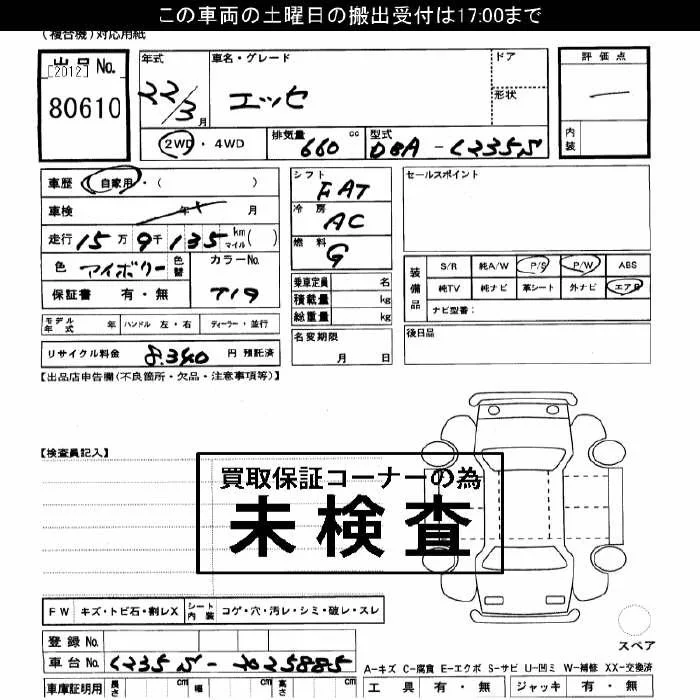 この車両の土曜日の搬出受付は17:00まで
(複合機)対応用紙
出品 No.
[2012]
80610
年式 22/3 月
車名・グレード エッセ
ドア
形状
評価点
内装
2WD・4WD
排気量 660 cc
型式 DBA-L235S
車歴 自家用・( )
車検 年 月
走行 15万9千135 km マイル( )
色 アイボリー 色替
カラーNo. T19
保証書 有・無
シフト FAT
冷房 AC
燃料 G
乗車定員 名
積載量 kg
総重量 kg
セールスポイント
装備品
S/R 純A/W P/S P/W ABS
純TV 純ナビ 革シート 外ナビ エアB
ナビ型番:
モデル年式 年 ハンドル 左・右 ディーラー・並行
名変期限 月 日
後日品
リサイクル料金 8,340 円 預託済
【出品店申告欄(不良箇所・欠品・注意事項等)】
【検査員記入】
買取保証コーナーの為
未検査
FW キズ・トビ石・割レX シート内装 コゲ・穴・汚レ・シミ・破レ・スレ
スペア
登録 No.
車台 No. L235S-2025885
A-キズ C-腐食 E-エクボ S-サビ U-凹ミ W-補修 XX-交換済
車庫証明用 長さ cm 幅 cm 高さ cm
工具 有・無 ジャッキ 有・無